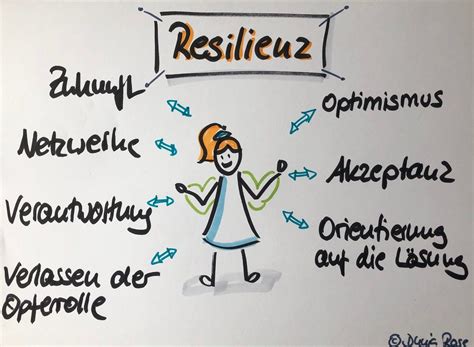 Resilienz
Zukunft
Netzwerke
Verantwortung
Verlassen der
Opferrolle
Optimismus
Akzeptanz
Orientierung
auf die Lösung
©
Rose